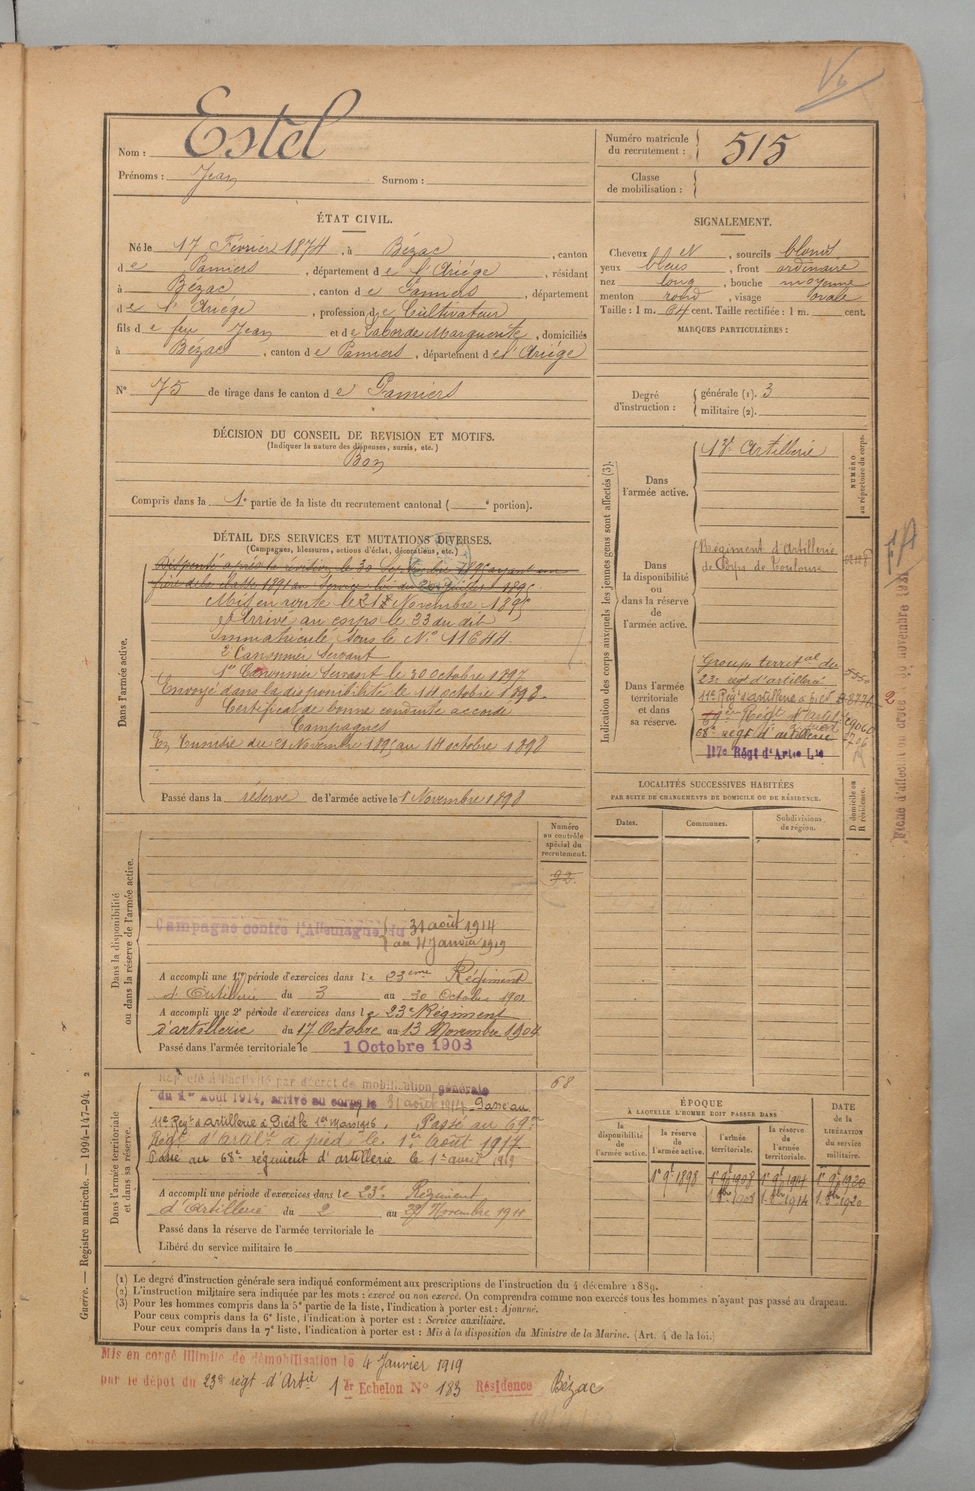 Nom : Estel
Prénoms : Jean Surnom :
Numéro matricule du recrutement : 515
Classe de mobilisation :
ÉTAT CIVIL.
Né le 17 Février 1874, à Bézac, canton
de Pamiers, département de l'Ariége, résidant
à Bézac, canton de Pamiers, département
de l'Ariége, profession de Cultivateur
fils de feu Jean et de Laborde Marguerite, domiciliés
à Bézac, canton de Pamiers, département de l'Ariége
N° 75 de tirage dans le canton de Pamiers
SIGNALEMENT.
Cheveux bl, sourcils blond
yeux bleus, front ordinaire
nez long, bouche moyenne
menton rond, visage ovale
Taille : 1 m. 64 cent. Taille rectifiée : 1 m. cent.
MARQUES PARTICULIÈRES :
Degré d'instruction : générale (1). 3
militaire (2).
DÉCISION DU CONSEIL DE REVISION ET MOTIFS.
(Indiquer la nature des dispenses, sursis, etc.)
Bon
Compris dans la 1e partie de la liste du recrutement cantonal ( e portion).
DÉTAIL DES SERVICES ET MUTATIONS DIVERSES.
(Campagnes, blessures, actions d'éclat, décorations, etc.)
Dans l'armée active.
Mis en route le 21 Novembre 1895
Arrivé au corps le 23 du dit
Immatriculé sous le N° 11644
2e Canonnier Servant
1er Canonnier Servant le 30 Octobre 1897
Envoyé dans la disponibilité le 14 octobre 1898
Certificat de bonne conduite accordé
Campagnes
En Tunisie du Novembre 1895 au 14 octobre 1898
Passé dans la réserve de l'armée active le 1 Novembre 1898
Indication des corps auxquels les jeunes gens sont affectés (3).
NUMÉRO au répertoire du corps.
Dans l'armée active.
13e Artillerie
Dans la disponibilité ou dans la réserve de l'armée active.
Régiment d'Artillerie
de Corps de Toulouse
Dans l'armée territoriale et dans sa réserve.
Groupe territal du
23e rgt d'artillerie
11e Régt d'artillerie à pied
68e régt d'artillerie
117e Régt d'Artie Lde
LOCALITÉS SUCCESSIVES HABITÉES
PAR SUITE DE CHANGEMENTS DE DOMICILE OU DE RÉSIDENCE.
Dates. Communes. Subdivisions de région. D domicile ou R résidence.
Dans la disponibilité ou dans la réserve de l'armée active.
Numéro au contrôle spécial du recrutement.
92
Campagne contre l'Allemagne, du 31 août 1914
au 4 Janvier 1919
A accompli une 1re période d'exercices dans le 23eme Régiment
d'Artillerie du 3 au 30 Octobre 1901
A accompli une 2e période d'exercices dans le 23e Régiment
d'artillerie du 17 Octobre au 13 Novembre 1904
Passé dans l'armée territoriale le 1 Octobre 1908
Dans l'armée territoriale et dans sa réserve.
68
Rappelé à l'activité par décret de mobilisation générale
du 1er Août 1914, arrivé au corps le 31 août 1914. Passé au
11e Regt d'artillerie à Pied le 1er Mars 1916. Passé au 69e
Régt d'Artie à pied le 1er Août 1917
Passé au 68e régiment d'artillerie le 1er avril 1918
A accompli une période d'exercices dans le 23e Régiment
d'Artillerie du 2 au Novembre 1911
Passé dans la réserve de l'armée territoriale le
Libéré du service militaire le
ÉPOQUE
À LAQUELLE L'HOMME DOIT PASSER DANS
la disponibilité de l'armée active. la réserve de l'armée active. l'armée territoriale. la réserve de l'armée territoriale.
DATE de la LIBÉRATION du service militaire.
(1) Le degré d'instruction générale sera indiqué conformément aux prescriptions de l'instruction du 4 décembre 1889.
(2) L'instruction militaire sera indiquée par les mots : exercé ou non exercé. On comprendra comme non exercés tous les hommes n'ayant pas passé au drapeau.
(3) Pour les hommes compris dans la 5e partie de la liste, l'indication à porter est : Ajourné.
Pour ceux compris dans la 6e liste, l'indication à porter est : Service auxiliaire.
Pour ceux compris dans la 7e liste, l'indication à porter est : Mis à la disposition du Ministre de la Marine. (Art. 4 de la loi.)
Mis en congé illimité de démobilisation le 4 Janvier 1919
par le dépôt du 23e regt d'Artie 1er Echelon N° 183 Résidence Bézac
Guerre. — Registre matricule. — 1994-147-94. 2